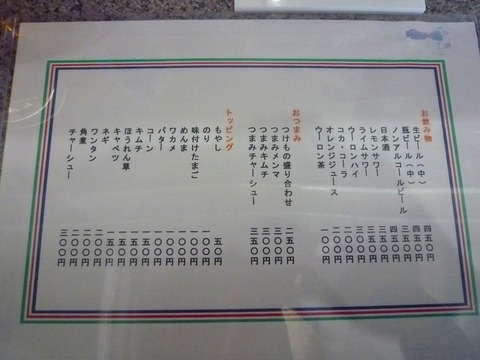 お飲み物
生ビール（中） 四五〇円
瓶ビール（中）
ノンアルコールビール
日本酒
レモンサワー
ライムサワー
ウーロンハイ
コカ・コーラ 二〇〇円
オレンジジュース 二〇〇円
ウーロン茶 一〇〇円
おつまみ
つけもの盛り合わせ 二五〇円
つまみメンマ
つまみキムチ
つまみチャーシュー 三五〇円
トッピング
もやし 五〇円
のり 一〇〇円
味付けたまご 一〇〇円
めんま 一〇〇円
ワカメ 一〇〇円
バター 一〇〇円
コーン
キムチ
ほうれん草
キャベツ
ネギ
ワンタン 二〇〇円
角煮 二〇〇円
チャーシュー 三〇〇円